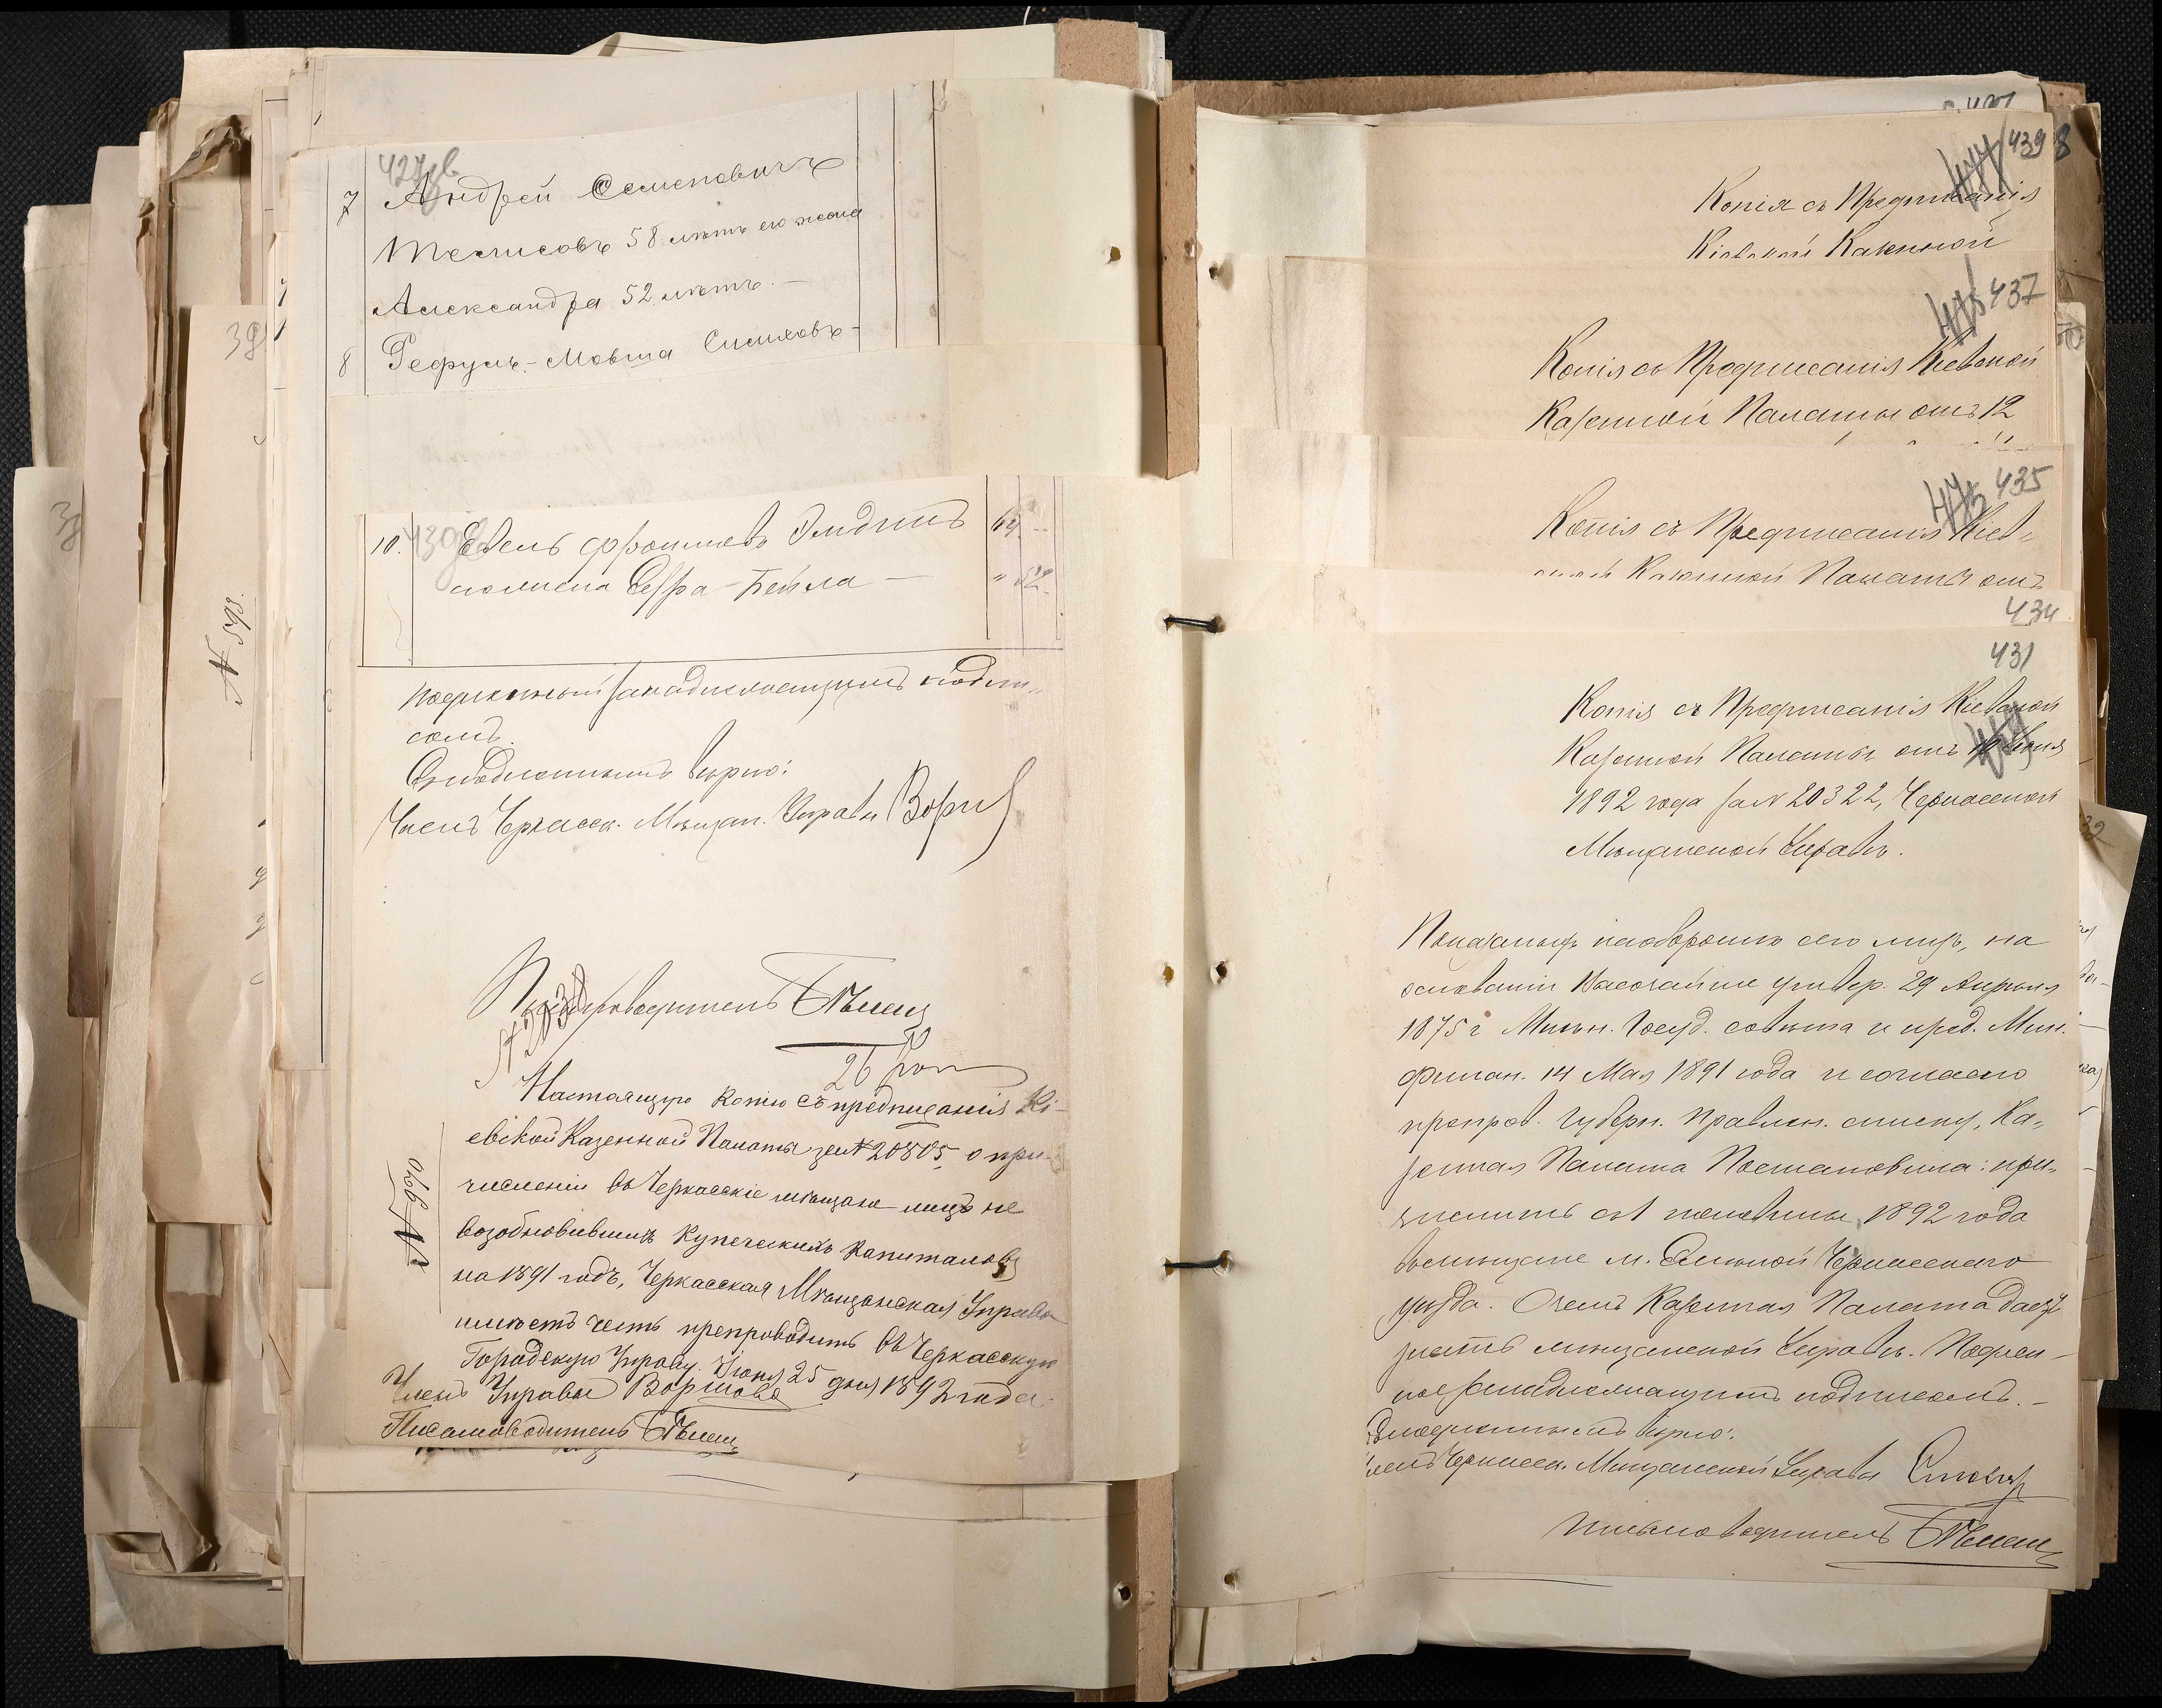 427 об
7 Андрей Семеновичъ
Темисовъ 58 лѣтъ его жена
Александра 52 лѣтъ. —
8 Рефулъ-Мовша Симховъ-
10. Евель Фроимовъ
жена его Бейла —
Подлинный за надлежащимъ подпи-
сомъ.
Съ подлиннымъ вѣрно:
Членъ Черкасск. Мѣщан. Управы
Письмоводитель
26 коп
Настоящую копію съ предписанія Кі-
евской Казенной Палаты за № 20805, о при-
численіи въ Черкасскіе мѣщане лицъ не
возобновившихъ купеческихъ капиталовъ
на 1891 годъ, Черкасская Мѣщанская Управа
имѣетъ честь препроводить въ Черкасскую
Городскую Управу. Іюня 25 дня 1892 года.
Членъ Управы
Письмоводитель
№ 940
№ 595
39
439
Копія съ Предписанія
Кіевской Казенной
437
Копія съ Предписанія Кіевской
Казенной Палаты отъ 12
435
Копія съ Предписанія Кіев-
ской Казенной Палаты отъ
434
431
Копія съ Предписанія Кіевской
Казенной Палаты отъ Іюня
1892 года за № 20322, Черкасской
Мѣщанской Управѣ.
Показанныхъ на оборотѣ сего лицъ, на
основаніи Высочайше утвер. 29 Апрѣля
1875 г Мнѣн. Госуд. совѣта и пред. Мин.
Финан. 14 Мая 1891 года и согласно
препров. Губерн. Правлен. списку, Ка-
зенная Палата Постановила: при-
числить съ 1 половины 1892 года
въ мѣщане м. Смѣлой Черкасскаго
уѣзда. О чемъ Казенная Палата даетъ
знать мѣщанской Управѣ. Подлин-
ное за надлежащимъ подписомъ. —
Съ подлиннымъ вѣрно:
Членъ Черкасск. Мѣщанской Управы
Письмоводитель